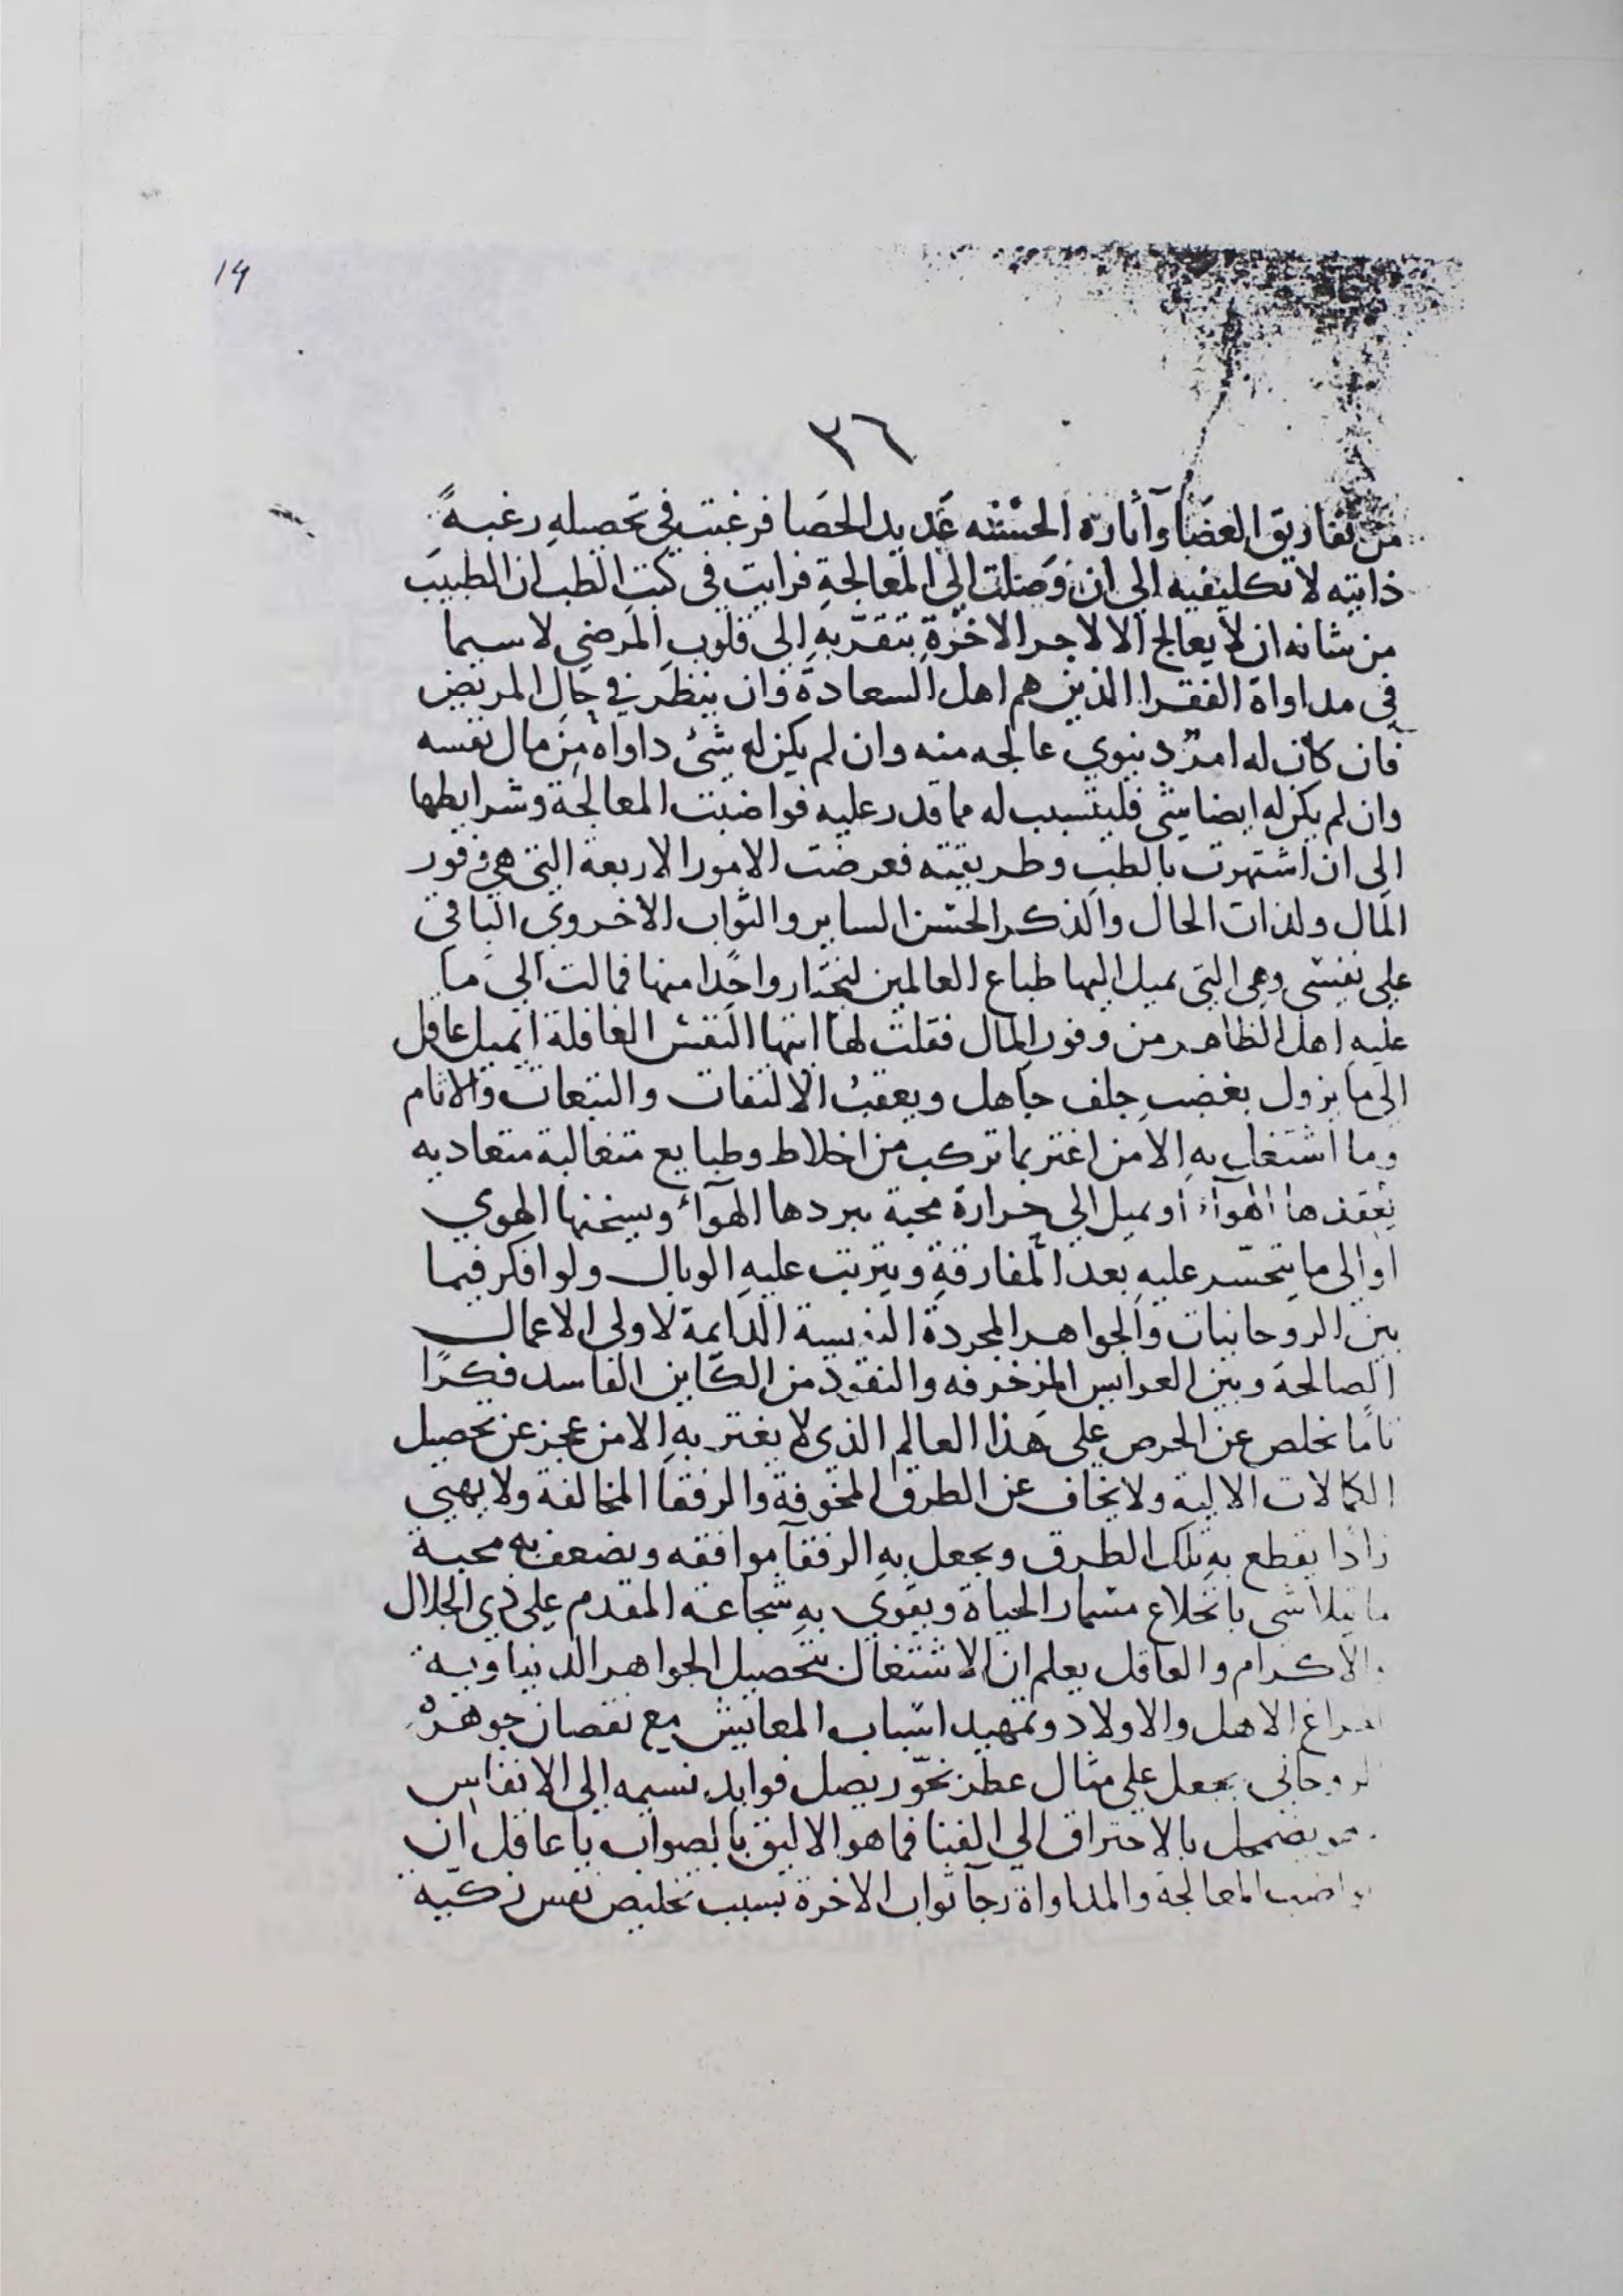 14
٣٦
من تفاريق العصا وآثاره الحسنه عديد الحصا فرغبت في تحصيله رغبةً
ذاتيه لا تكليفيه الى ان وصلت الى المعالجة فرايت فى كتب الطب ان الطبيب
من شانه ان لا يعالج الا لاجر الاخرة بتقربه الى قلوب المرضي لا سيما
فى مداواة الفقرا الذين هم اهل السعادة وان ينظر في حال المريض
فان كان له امر دنيوي عالجه منه وان لم يكن له شئ داواه من مال نفسه
وان لم يكن له ايضا شى فليتسبب له مما قدر عليه فواضبت المعالجة وشرايطها
الى ان اشتهرت بالطب وطريقته فعرضت الامور الاربعة التى هي وفور
المال ولذات الحال والذكر الحسن الساير والثواب الاخروي الباقي
على نفسى وهى التى تميل اليها طباع العالمين لتختار واحدًا منها فمالت الي ما
عليه اهل الظاهر من وفور المال فقلت لها ايتها النفس الغافلة ايميل عاقل
الى ما يزول بغضب جلف جاهل ويعقب الالتفات والتبعات والاثام
وما اشتغل به الا من اغتر بما تركب من اخلاط وطبايع متغالبة متعاديه
الهوآء او يميل الى حرارة محبة يبردها الهوآء ويسخنها الهوي
او الى ما يتحسر عليه بعد المفارقة ويترتب عليه الوبال ولو افكر فيما
بين الروحانيات والجواهر المجردة الدايمة لاولى الاعمال
الصالحة وبين العرايس المزخرفه والنقود من الكاين الفاسد فكرًا
تامًا تخلص عن الحرص على هذا العالم الذى لا يغتر به الا من عجز عن تحصيل
الكمالات الالية ولا يخاف عن الطرق المخوفة والرفقا المخالفة ولا يهيى
زادًا يقطع به تلك الطرق ويجعل به الرفقآ موافقه ويضعف به محبة
ما يتلاشى بانخلاع مسمار الحياة ويقوى به شجاعة المقدم على ذى الجلال
والاكرام والعاقل يعلم ان الاشتغال بتحصيل الجواهر الدنياوية
الاهل والاولاد وتمهيد اسباب المعايش مع نقصان جوهره
الروحانى يجعل على مثال عطر تحوّر يصل فوايد نسيمه الى الانفاس
يضمحل بالاحتراق الي الفنا فما هو الاليق بالصواب يا عاقل ان
المعالجة والمداواة رجآ ثواب الاخرة بسبب تخليص نفس زكيّه